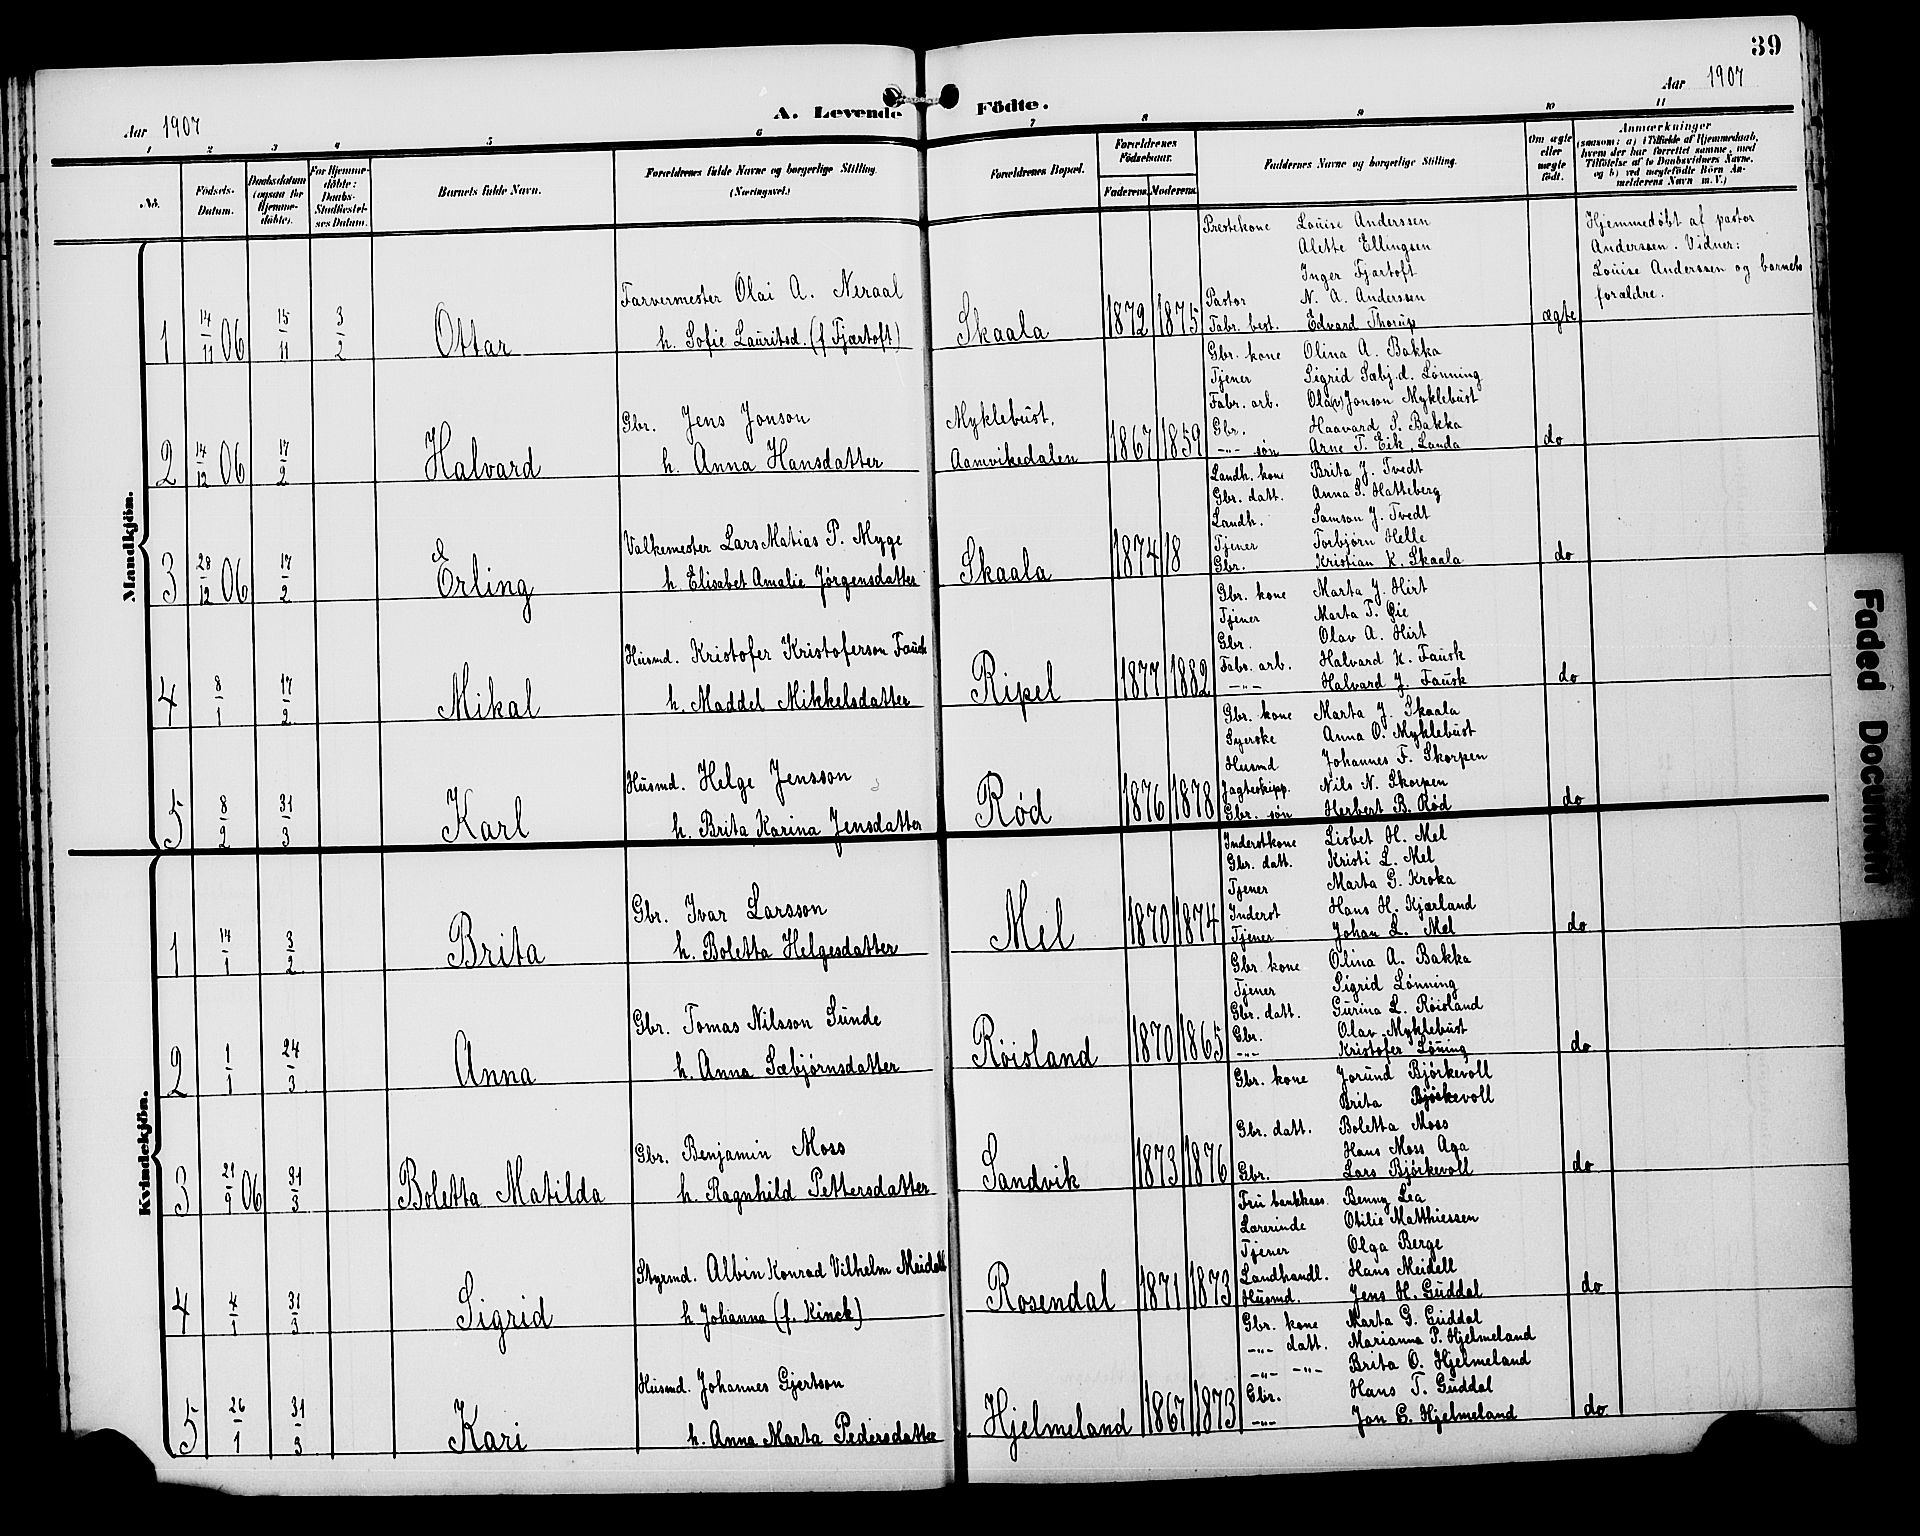 39
Aar 1907
A. Levende Födte.
Aar 1907
1 2 3 4 5 6 7 8 9 10 11
No.
Födsels-Datum.
Daabsdatum (ogsaa for Hjemme-döbte).
For Hjemme-döbte: Daabs-Stadfæstel-ses Datum.
Barnets fulde Navn.
Forældrenes fulde Navne og borgerlige Stilling. (Næringsvei.)
Forældrenes Bopæl.
Forældrenes Födselsaar.
Faderens. Moderens.
Faddernes Navne og borgerlige Stilling.
Om ægte eller uægte født.
Anmærkninger
(saasom: a) i Tilfælde af Hjemmedaab, hvem der har forrettet samme, med Tilföielse af to Daabsvidners Navne, og b) ved uægtefödte Börn An-melderens Navn m. V.)
Mandkjön.
1 14/11 06 15/11 3/2 Ottar
Farvermester Olai A. Neraal
h. Sofie Lauritsd. (f Fjærtoft)
Skaala 1872 1875
Prestekone Louise Anderssen
Alette Ellingsen
Inger Fjærtoft
Pastor N. A. Anderssen
Fabr. best. Edvard Thorup
ægte
Hjemmedøbt af pastor
Anderssen. Vidner:
Louise Anderssen og barnets
forældre.
2 14/12 06 17/2 Halvard
Gbr. Jens Jonson
h. Anna Hansdatter
Myklebust,
Aamvikedalen 1867 1859
Gbr. kone Olina A. Bakka
Tjener Sigrid Sæbj.d. Lønning
Fabr. arb. Ola(v) Jonson Myklebust
Gbr. Haavard P. Bakka
-"- søn Arne T. Eik, Landa
do
3 28/12 06 17/2 Erling
Valkemester Lars Matias P. Myge
h. Elisabet Amalie Jørgensdatter
Skaala 1874 18
Landh. kone Brita J. Tvedt
Gbr. datt. Anna S. Hatteberg
Landh. Samson J. Tvedt
Tjener Torbjørn Helle
Gbr. Kristian K. Skaala
do
4 8/1 17/2 Mikal
Husmd. Kristofer Kristoferson Fausk
h. Maddel Mikkelsdatter
Ripel 1877 1882
Gbr. kone Marta J. Hirt
Tjener Marta T. Øie
Gbr. Olav A. Hirt
Fabr. arb. Halvard K. Fausk
-"- Halvard J. Fausk
do
5 8/2 31/3 Karl
Husmd. Helge Jensson
h. Brita Karina Jensdatter
Rød 1876 1878
Gbr. kone Marta J. Skaala
Syerske Anna O. Myklebust
Husmd Johannes F. Skorpen
Jagteskipp. Nils N. Skorpen
Gbr. søn Herbert B. Rød
do
Kvindekjön.
1 14/1 3/2 Brita
Gbr. Ivar Larsson
h. Boletta Helgesdatter
Mel 1870 1874
Inderstkone Lisbet H. Mel
Gbr. datt. Kristi L. Mel
Tjener Marta G. Kroka
Inderst Hans H. Kjærland
Tjener Johan L. Mel
do
2 1/1 24/3 Anna
Gbr. Tomas Nilsson Sunde
h. Anna Sæbjørnsdatter
Røisland 1870 1865
Gbr. kone Olina A. Bakka
Tjener Sigrid Lønning
Gbr. datt. Gurina L. Røisland
Gbr. Olav Myklebust
-"- Kristofer Løning
do
3 21/9 06 31/3 Boletta Matilda
Gbr. Benjamin Moss
h. Ragnhild Pettersdatter
Sandvik 1873 1876
Gbr. kone Jorund Bjørkevoll
Brita Bjørkevoll
Gbr. datt. Boletta Moss
Hans Moss Aga
Gbr. Lars Bjørkevoll
do
4 4/1 31/3 Sigrid
Styrmd. Albin Konrad Vilhelm Meidell
h Johanna (f. Kinck)
Rosendal 1871 1873
Fru bankkas. Benny Lea
Lærerinde Otilie Matthiessen
Tjener Olga Berge
Landhandl. Hans Meidell
Husmd. Jens H. Guddal
do
5 26/1 31/3 Kari
Husmd. Johannes Gjertson
h. Anna Marta Pedersdatter
Hjelmeland 1867 1873
Gbr. kone Marta G. Guddal
-"- datt. Marianna P. Hjelmeland
-"- -"- Brita O. Hjelmeland
Gbr. Hans T. Guddal
-"- Jon G. Hjelmeland
do
Faded Document